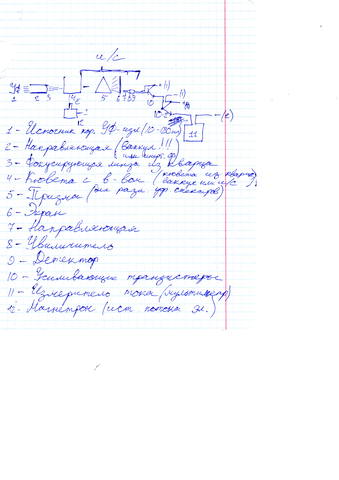 и/с
1 2 3 5 6 7 8 9 10 -(1)
10 -(2)
11
1 - Источник пор. УФ-изл (10-
2 - Направляющая (вакуум!!!
или инерт.
3 - Фокусирующая линза из кварца
4 - Кювета с в-вом (кювета из кварца
вакуум или и/с
5 - Призма (
6 - Экран
7 - Направляющая
8 - Увеличитель
9 - Детектор
10 - Усиливающие транзисторы
11 - Измеритель тока (мультиметр)
- Магнетрон (ист. потока эл.)